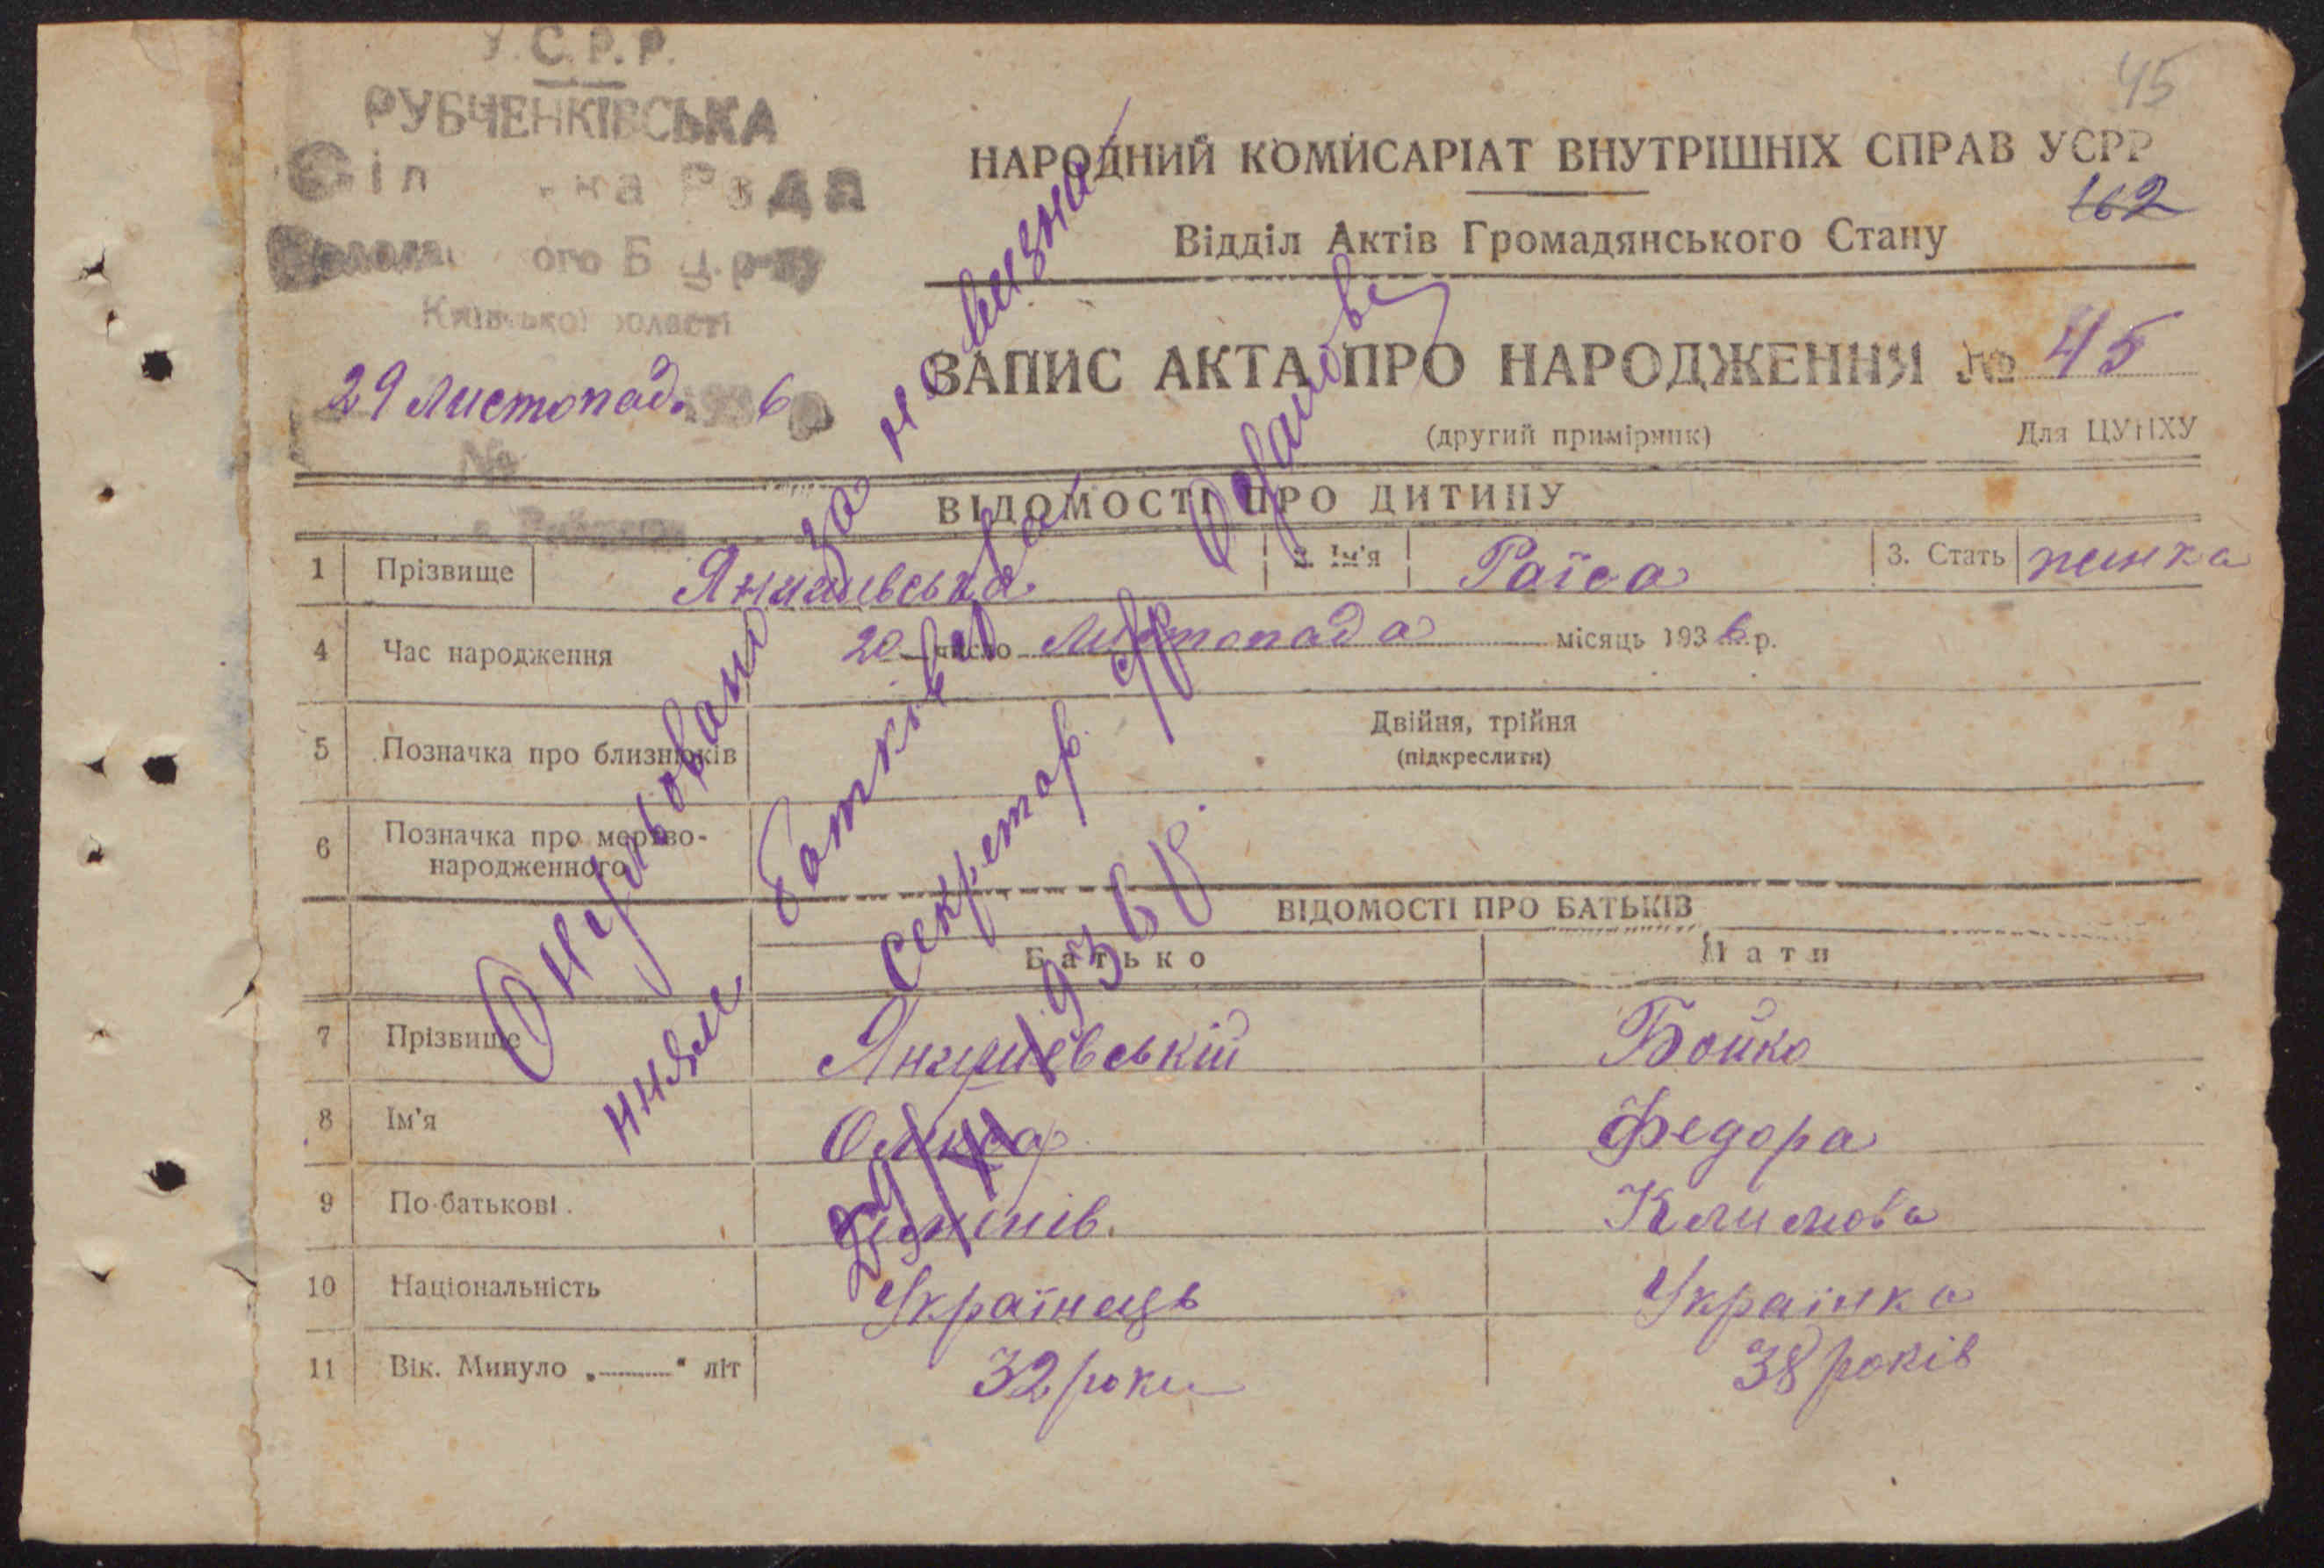 У.С.Р.Р.
РУБЧЕНКІВСЬКА
Сіл ка Рада
ого Б Ц. р-ну
Київської області
29 Листопад. 1936
№
45
НАРОДНИЙ КОМІСАРІАТ ВНУТРІШНІХ СПРАВ УСРР
162
Відділ Актів Громадянського Стану
ЗАПИС АКТА ПРО НАРОДЖЕННЯ № 45
(другий примірник) Для ЦУНХУ
ВІДОМОСТІ ПРО ДИТИНУ
1 Прізвище Янишевська 2. Ім'я Раїса 3. Стать жинка
4 Час народження 20 число Листопада місяць 1936 р.
5 Позначка про близнюків Двійня, трійня
(підкреслити)
6 Позначка про мертво-
народженного
ВІДОМОСТІ ПРО БАТЬКІВ
Батько Мати
7 Прізвище Янишевській Бойко
8 Ім'я Олексар Федора
9 По-батькові Климова
10 Національність Українець Українка
11 Вік. Минуло „ “ літ 32 роки 38 років
Онульовано за не визна
нням Батьківства
Секретар
29/XI 1936 р.